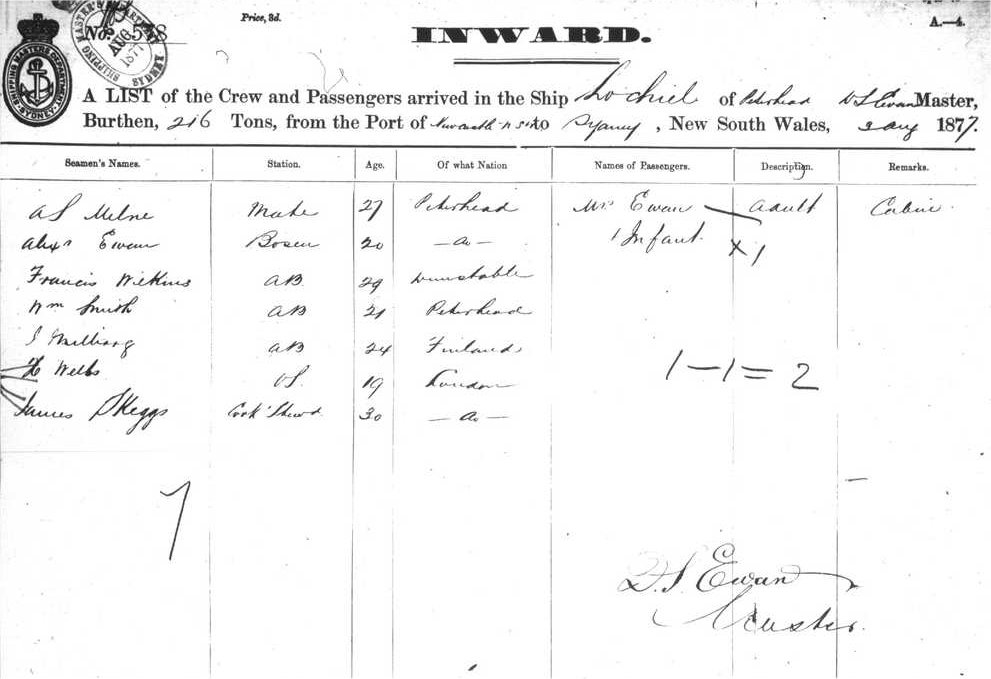 Price, 3d.
A.—4.
No. 578
SHIPPING MASTER'S DEPARTMENT SYDNEY
AUG 1877
SHIPPING MASTER'S DEPARTMENT SYDNEY
INWARD.
A LIST of the Crew and Passengers arrived in the Ship Lochiel of Peterhead D S Ewan Master,
Burthen, 216 Tons, from the Port of Newcastle N S W to Sydney, New South Wales, 3 Aug 1877.
Seamen's Names. Station. Age. Of what Nation Names of Passengers. Description. Remarks.
A S Milne Mate 27 Peterhead Mrs Ewan adult Cabin
Alexr Ewan Bosen 20 — Do — 1 Infant. X 1
Francis Wilkins AB 29 Dunstable
Wm Smith AB 21 Peterhead
AB 24 Finland
Wells OS 19 London
James Skeggs Cook Stewd 30 — Do —
1 — 1 = 2
7
D. S. Ewan
Master.